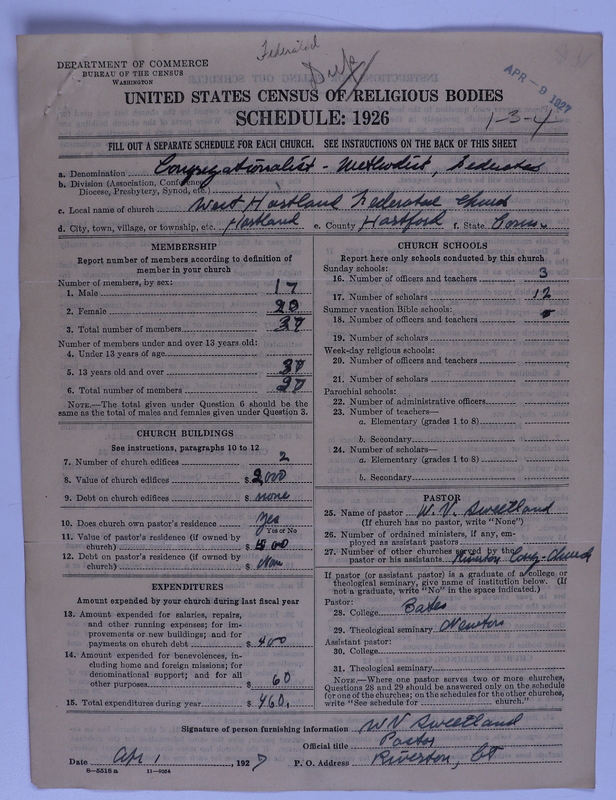 Federated
DEPARTMENT OF COMMERCE
BUREAU OF THE CENSUS
WASHINGTON
APR - 9 1927
UNITED STATES CENSUS OF RELIGIOUS BODIES
SCHEDULE: 1926
1-3-4
FILL OUT A SEPARATE SCHEDULE FOR EACH CHURCH. SEE INSTRUCTIONS ON THE BACK OF THIS SHEET
a. Denomination Congregationalist - Methodist, Federated
b. Division (Association, Conference, Diocese, Presbytery, Synod, etc.)
c. Local name of church West Hartland Federated Church
d. City, town, village, or township, etc. Hartland e. County Hartford f. State Conn.
MEMBERSHIP
Report number of members according to definition of
member in your church
Number of members, by sex:
1. Male 17
2. Female 20
3. Total number of members 37
Number of members under and over 13 years old:
4. Under 13 years of age
5. 13 years old and over 37
6. Total number of members 37
NOTE.—The total given under Question 6 should be
same as the total of males and females given under Question 3.
CHURCH BUILDINGS
See instructions, paragraphs 10 to 12
7. Number of church edifices 2
8. Value of church edifices $ 2,000
9. Debt on church edifices $ none
10. Does church own pastor's residence Yes
Yes or No
11. Value of pastor's residence (if owned by
church) $ 500
12. Debt on pastor's residence (if owned by
church) $ None
EXPENDITURES
Amount expended by your church during last fiscal year
13. Amount expended for salaries, repairs,
and other running expenses; for im-
provements or new buildings; and for
payments on church debt $ 400
14. Amount expended for benevolences, in-
cluding home and foreign missions; for
denominational support; and for all
other purposes $ 60
15. Total expenditures during year $ 460.
CHURCH SCHOOLS
Report here only schools conducted by this church
Sunday schools:
16. Number of officers and teachers 3
17. Number of scholars 12
Summer vacation Bible schools:
18. Number of officers and teachers
19. Number of scholars
Week-day religious schools:
20. Number of officers and teachers
21. Number of scholars
Parochial schools:
22. Number of administrative officers
23. Number of teachers—
a. Elementary (grades 1 to 8)
b. Secondary
24. Number of scholars—
a. Elementary (grades 1 to 8)
b. Secondary
PASTOR
25. Name of pastor W. V. Sweetland
(If church has no pastor, write "None")
26. Number of ordained ministers, if any, em-
ployed as assistant pastors
27. Number of other churches served by the
pastor or his assistants Riverton Cong. Church
If pastor (or assistant pastor) is a graduate of a college or
theological seminary, give name of institution below. (If
not a graduate, write "No" in the space indicated.)
Pastor:
28. College Bates
29. Theological seminary Newton
Assistant pastor:
30. College
31. Theological seminary
NOTE.—Where one pastor serves two or more churches,
Questions 28 and 29 should be answered only on the schedule
for one of the churches; on the schedules for the other churches,
write "See schedule for church."
Signature of person furnishing information W V Sweetland
Official title Pastor
Date Apr 1, 1927 P. O. Address Riverton, Ct
8-5518 a 11-9054